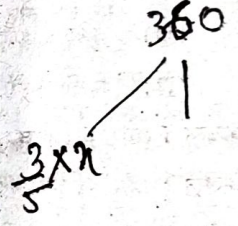 360
3/5 × x